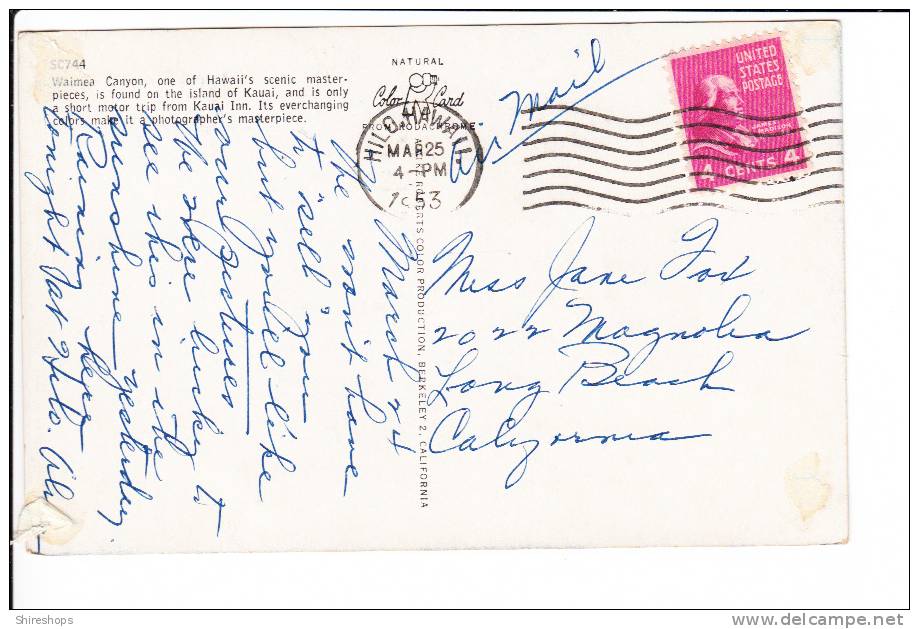 SC744
Waimea Canyon, one of Hawaii's scenic master-
pieces, is found on the island of Kauai, and is only
a short motor trip from Kauai Inn. Its everchanging
colors make it a photographer's masterpiece.
NATURAL
Color Card
FROM KODACHROME
HILO, HAWAII
MAR 25
4-PM
1953
Air Mail
UNITED
STATES
POSTAGE
4 CENTS 4
March 24
We won't have
to "sell" you
but you'll like
our pictures.
We were lucky to
see this in the
sunshine yesterday.
Raining here
tonight at Hilo.
COLOR PRODUCTION, BERKELEY 2, CALIFORNIA
Miss Jane Fox
2022 Magnolia
Long Beach
California
Shireshops
www.delcampe.net